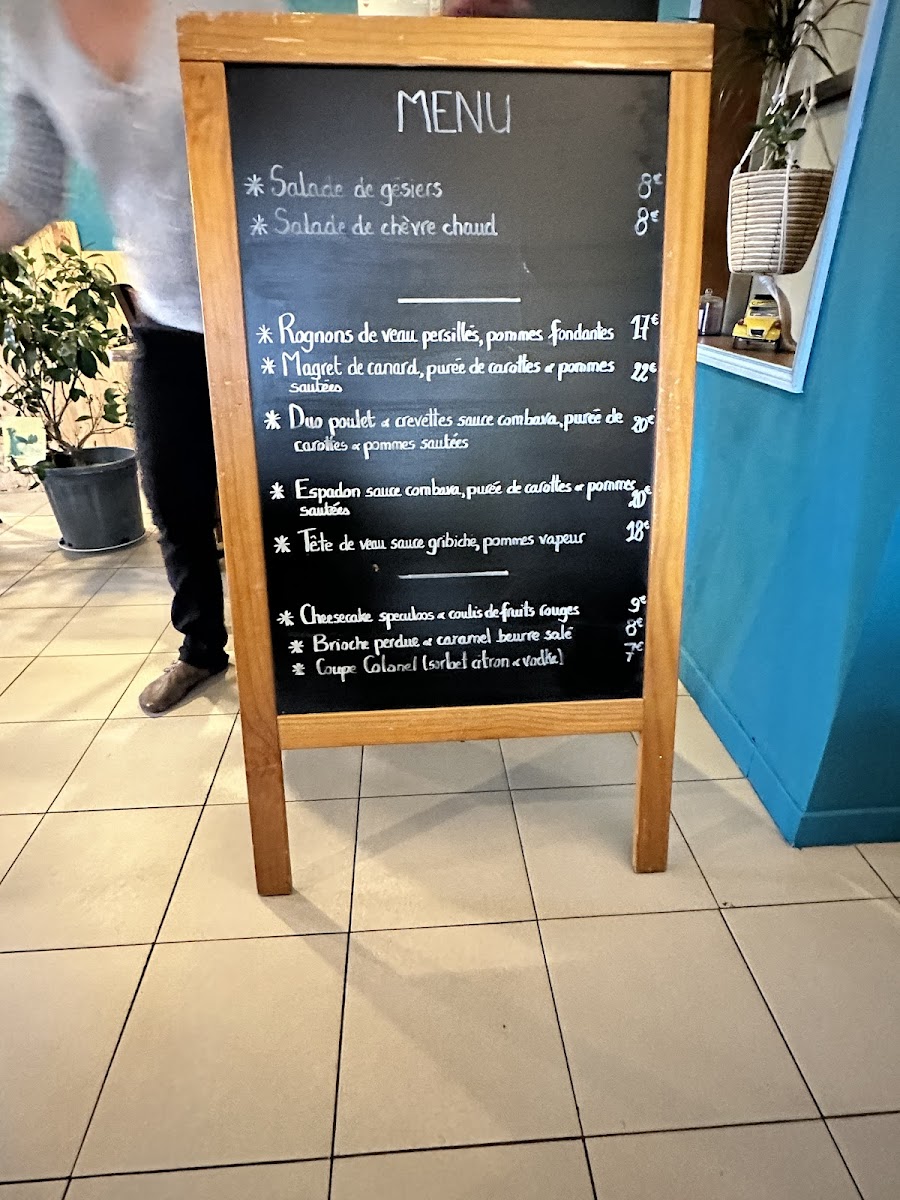 MENU
* Salade de gésiers 8€
* Salade de chèvre chaud 8€
* Rognons de veau persillés, pommes fondantes 17€
* Magret de canard, purée de carottes & pommes 22€
sautées
* Duo poulet & crevettes sauce combava, purée de 20€
carottes & pommes sautées
* Espadon sauce combava, purée de carottes & pommes 20€
sautées
* Tête de veau sauce gribiche, pommes vapeur 18€
* Cheesecake speculoos & coulis de fruits rouges 9€
* Brioche perdue & caramel beurre salé 8€
* Coupe Colonel (sorbet citron & vodka) 7€